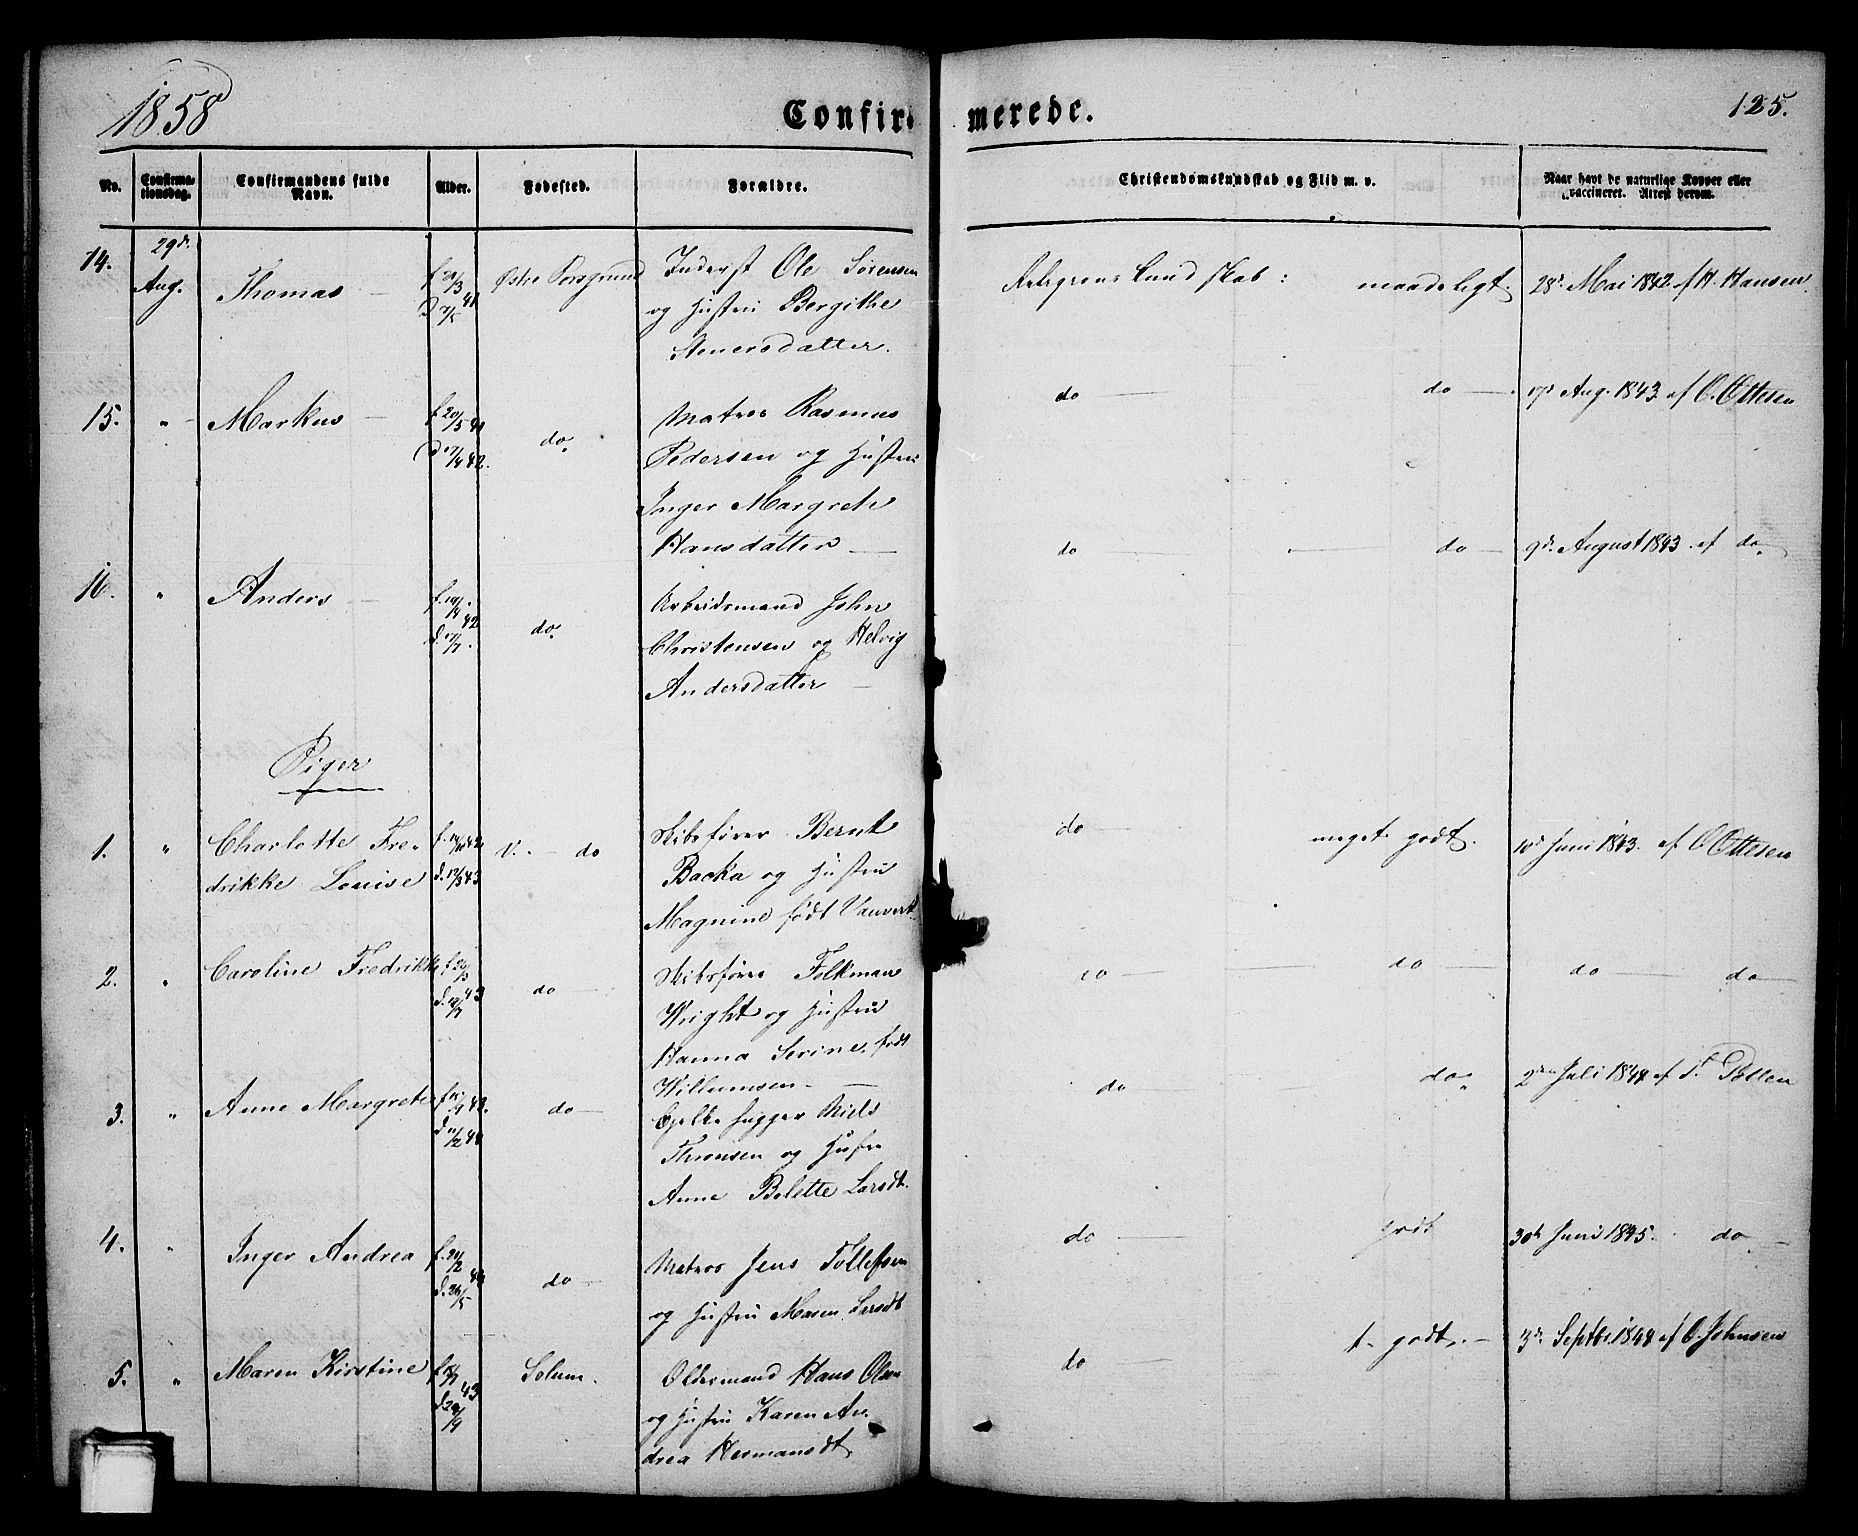 1858
Confirmerede.
125.
No.
Confirmationsdag.
Confirmandens fulde Navn.
Alder.
Fødested.
Forældre.
Christendomskundskab og Flid m. v.
Naar havt de naturlige Kopper eller vaccineret. Attest derom.
14.
29de
Aug.
Thomas —
Østre Porsgrund
Inderst Ole Sørensen
og Hustru Bergithe
maadeligt.
28de Mai 1842 af H. Hansen
15.
" Markus —
f. 20/5 41
do.
Matros Rasmus
Pedersen og Hustru
Inger Margrete
Hansdatter —
do — do —
17de Aug. 1843 af O. Ottesen
16.
" Anders —
do.
Arbeidsmand John
Christensen og Helvig
Andersdatter —
do — do —
9de August 1843. af do.
Piger
1.
" Charlotte Fre-
drikke Louise
V. — do
Skibsfører Bernt
Backa og Hustru
Magnine født
do — meget godt.
Juni 1843. af O Ottesen
2.
" Caroline Fredrikke
do —
Skibsfører
Wright og Hustru
Hanna Serine, født
Willumsen —
do — do — do — do —
3.
" Anne Margrete
do —
Niels
Thronsen og Hustru
Anne Bolette Larsdt.
do do "
2den Juli 1844 af
4.
" Inger Andrea
do —
Matros Jens Tollefsen
og Hustru Maren Larsdt
do — godt
30te Juni 1845. do —
5.
" Maren Kirstine
43
Solum.
Oldermand Hans Olsen
og Hustru Karen An-
drea Hermansdt.
do — t. godt. —
3de Septbr. 1844 af O. Johnsen